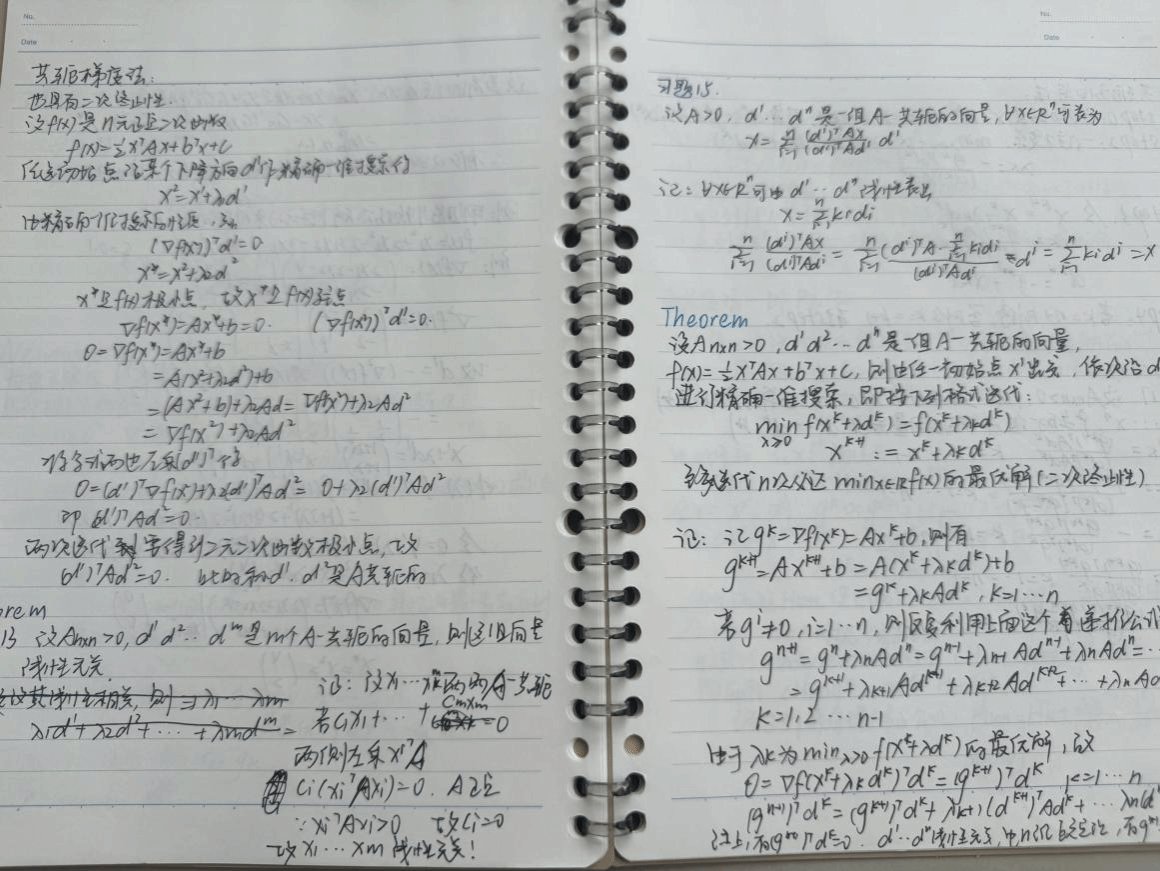 No.
Date
共轭梯度法:
也具有二次终止性.
设f(x)是n元正定二次函数
f(x)=½xᵀAx+bᵀx+c
任选初始点沿某个下降方向d¹作精确一维搜索得
x²=x¹+λ₁d¹
由精确一维搜索的性质,知
(∇f(x²))ᵀd¹=0
x*=x²+λ₂d²
x*是f(x)极小点, 故x*是f(x)驻点
∇f(x*)=Ax*+b=0. (∇f(x²))ᵀd¹=0.
0=∇f(x*)=Ax*+b
=A(x²+λ₂d²)+b
=(Ax²+b)+λ₂Ad²=∇f(x²)+λ₂Ad²
=∇f(x²)+λ₂Ad²
将等式两边左乘(d¹)ᵀ得
0=(d¹)ᵀ∇f(x²)+λ₂(d¹)ᵀAd²=0+λ₂(d¹)ᵀAd²
即(d¹)ᵀAd²=0.
两次迭代要得到二元二次函数极小点,故
(d¹)ᵀAd²=0. 此时称d¹.d²是A共轭的
orem
13 设Aₙₓₙ>0, d¹ d² ... dᵐ是m个A-共轭的向量,则这组向量
线性无关.
λ₁d¹+λ₂d²+...+λₘdᵐ=
证: 设x₁...xₘ两两A-共轭
若c₁x₁+...+cₘxₘ=0
两侧左乘xᵢᵀA
cᵢ(xᵢᵀAxᵢ)=0. A正定
∵xᵢᵀAxᵢ>0 故cᵢ=0
故x₁...xₘ线性无关!
No.
Date
习题15.
设A>0, d¹...dⁿ是一组A-共轭的向量,∀x∈Rⁿ可表为
x=∑ⁿᵢ₌₁ (dⁱ)ᵀAx/(dⁱ)ᵀAdⁱ dⁱ
证:∀x∈Rⁿ可由d¹...dⁿ线性表出
x=∑ⁿᵢ₌₁kᵢdᵢ
∑ⁿᵢ₌₁ (dⁱ)ᵀAx/(dⁱ)ᵀAdᵢ = ∑ⁿᵢ₌₁ (dⁱ)ᵀA·∑ⁿᵢ₌₁kᵢdᵢ/(dⁱ)ᵀAdᵢ dⁱ=∑ⁿᵢ₌₁kᵢdⁱ=x
Theorem
设Aₙₓₙ>0, d¹ d² ... dⁿ是一组A-共轭的向量,
f(x)=½xᵀAx+bᵀx+c, 则由任一初始点x¹出发,依次沿d
进行精确一维搜索,即按下列格式迭代:
min λ≥0 f(xᵏ+λdᵏ)=f(xᵏ+λₖdᵏ)
xᵏ⁺¹:=xᵏ+λₖdᵏ
迭代n次必达min x∈R f(x)的最优解(二次终止性)
证: 记gᵏ=∇f(xᵏ)=Axᵏ+b,则有
gᵏ⁺¹=Axᵏ⁺¹+b=A(xᵏ+λₖdᵏ)+b
=gᵏ+λₖAdᵏ, k=1...n
若gⁱ≠0, i=1...n, 则反复利用上面这个递推公式
gⁿ⁺¹=gⁿ+λₙAdⁿ=gⁿ⁻¹+λₙ₋₁Adⁿ⁻¹+λₙAdⁿ=...
=gᵏ⁺¹+λₖ₊₁Adᵏ⁺¹+λₖ₊₂Adᵏ⁺²+...+λₙAd
k=1,2...n-1
由于λₖ为min λ≥0 f(xᵏ+λdᵏ)的最优解,故
0=∇f(xᵏ+λₖdᵏ)ᵀdᵏ=(gᵏ⁺¹)ᵀdᵏ k=1...n
(gⁿ⁺¹)ᵀdᵏ=(gᵏ⁺¹)ᵀdᵏ+λₖ₊₁(dᵏ⁺¹)ᵀAdᵏ+...λₙ(d
综上,有(gⁿ⁺¹)ᵀdᵏ=0. d¹...dⁿ线性无关,